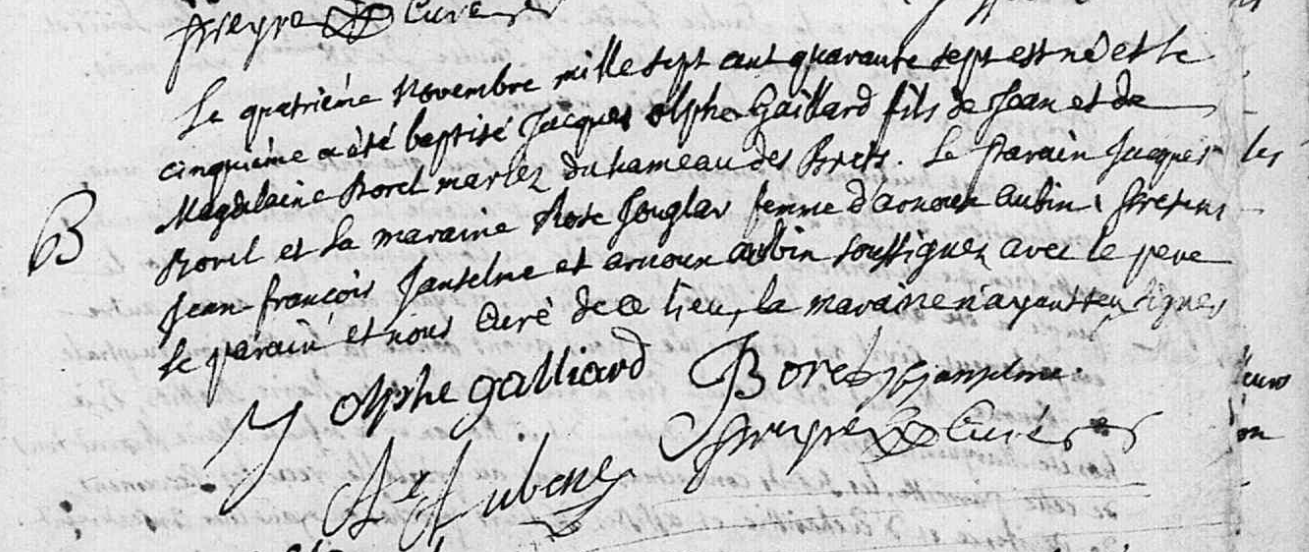 Freyre Curé
Le quatriéme Novembre mille sept cent quarante sept est né et le
cinquiéme a été baptisé Jacques Olphe Gaillard fils de Jean et de
Magdelaine Borel mariez du hameau des Brets. Le parain Jacques
B
Borel et la maraine Rose Jouglar femme d'arnoux aubin. presens
Jean françois Janselme et arnoux aubin soussignez avec le pere
le parain et nous Curé de ce lieu, la maraine n'ayant seu signer
J olphe galliard Borel Janselme.
Freyre Curé
A Aubene